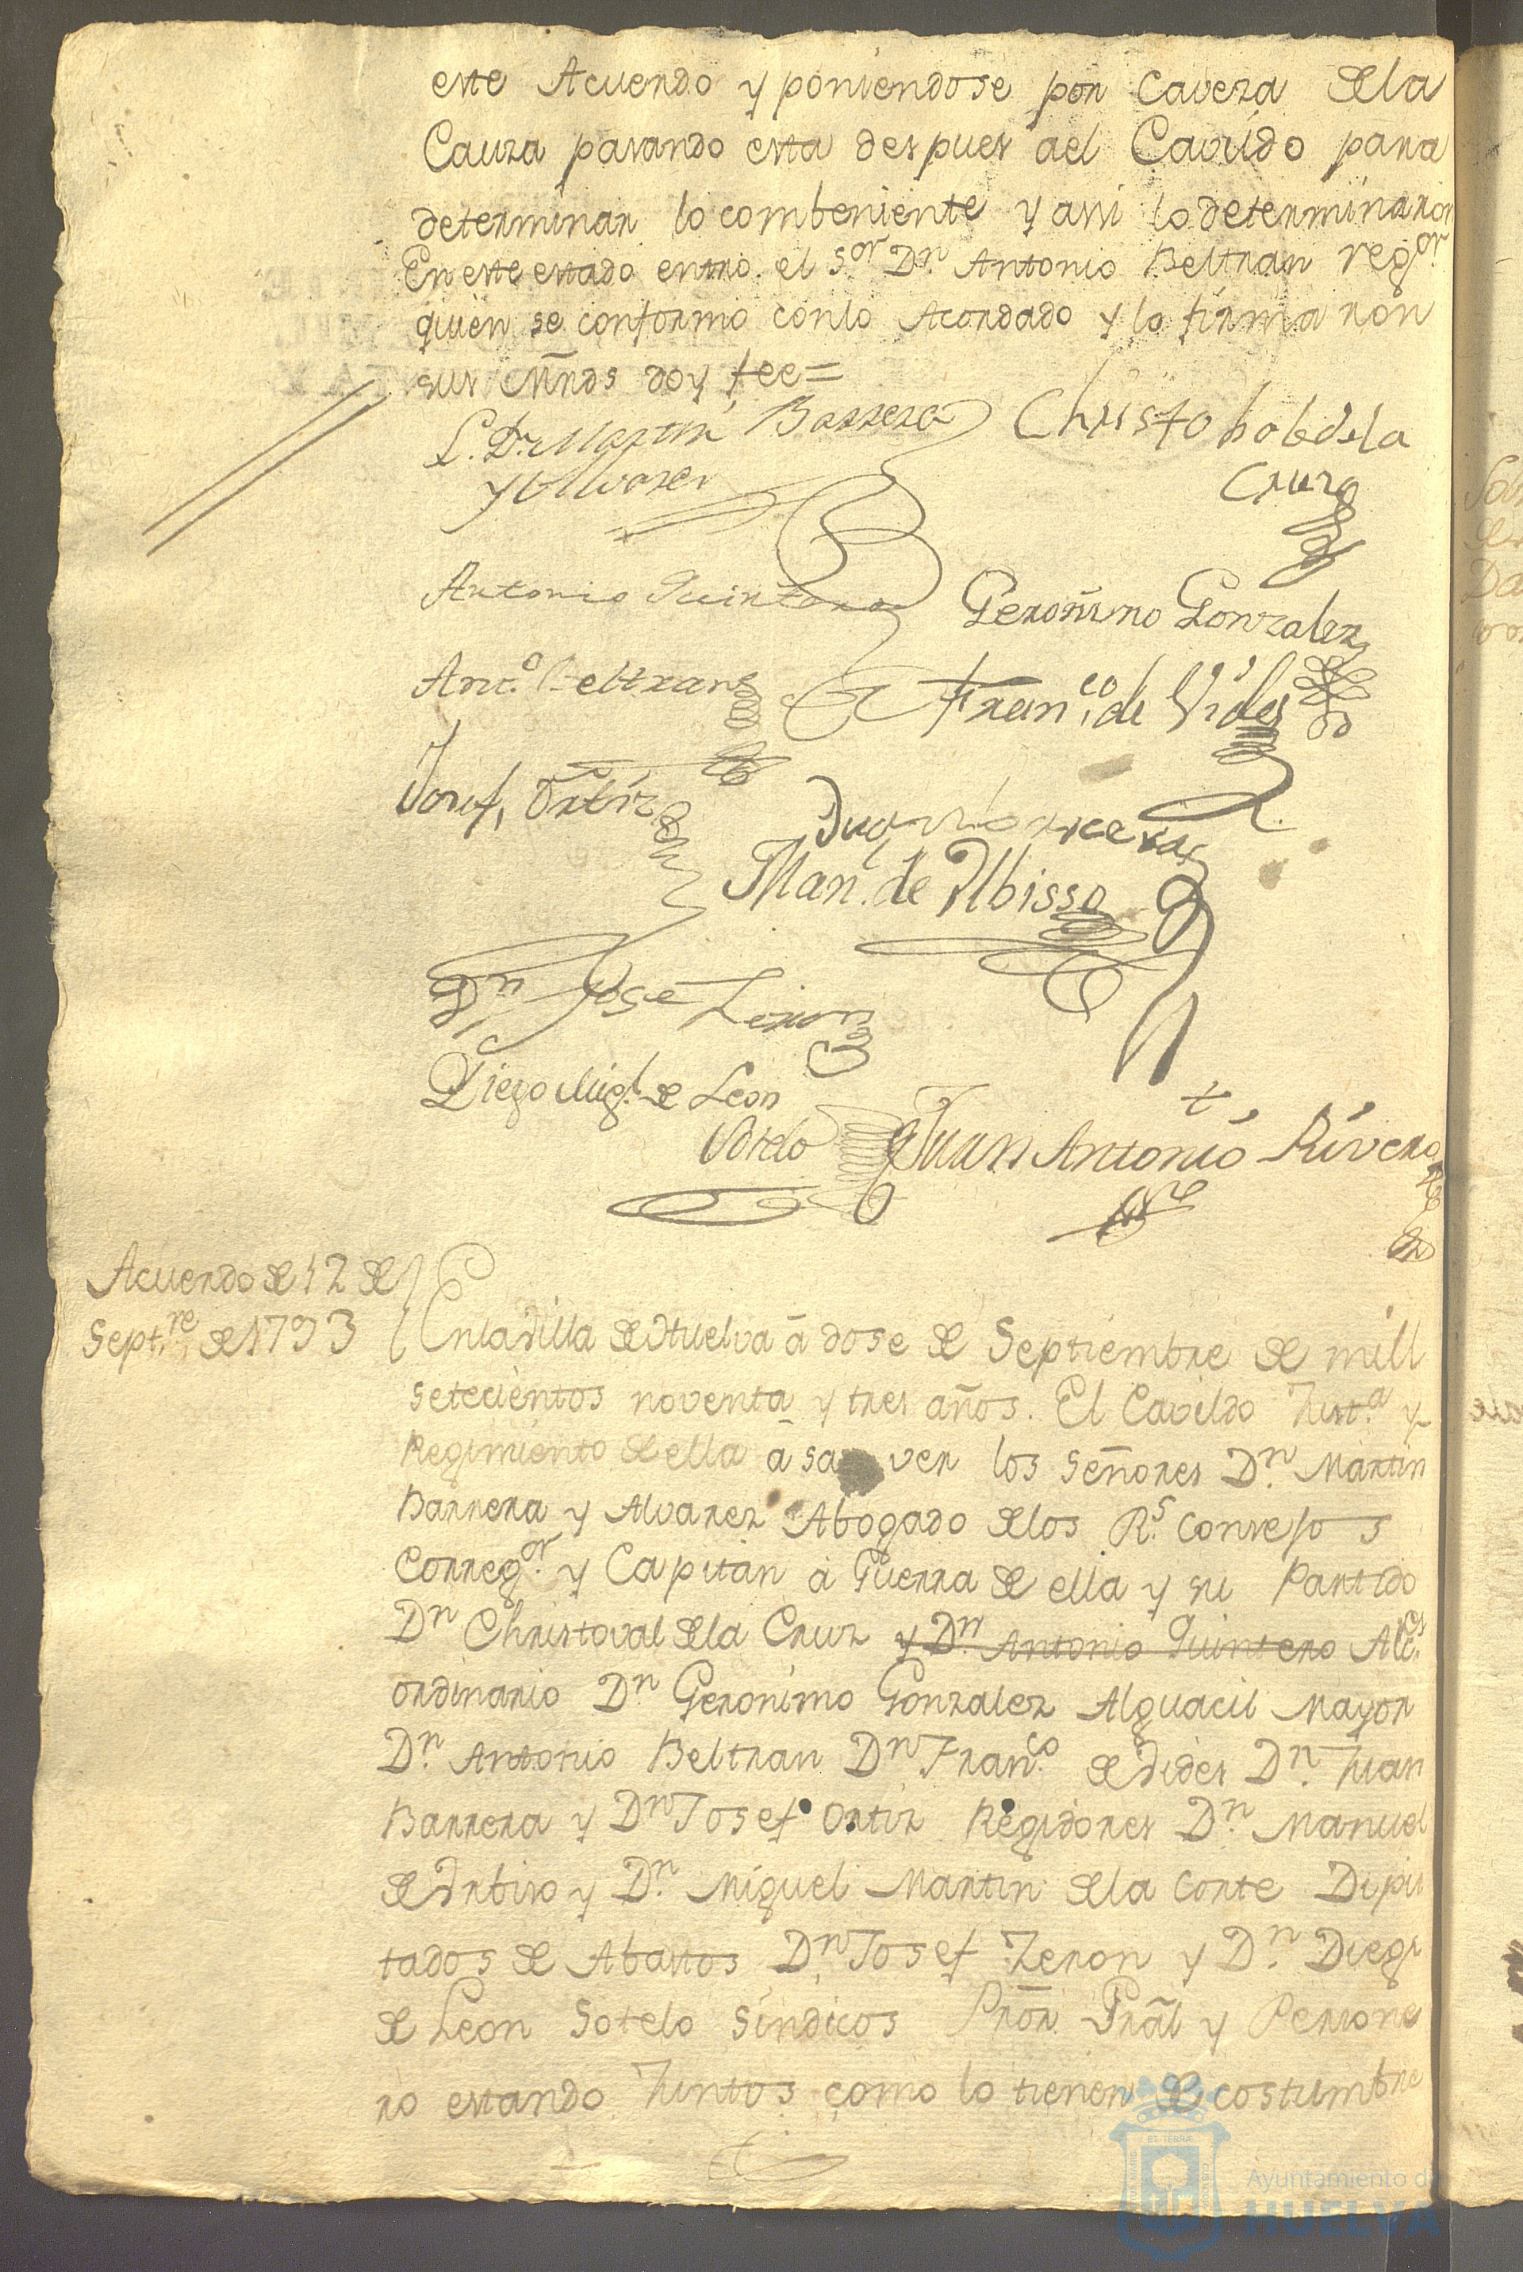 este Acuerdo y poniendose por Caveza dela
Cauza pasando esta despues ael Cavildo para
determinar lo combeniente y assi lo determinaron
En este estado entro el Sor. Dn. Antonio Beltran regor.
quien se conformo con lo Acordado y lo firmaron
sus mrds doy fee=
L. Dn Martin Barrera
y Alvarez
Christobal de la
Cruz
Antonio Quintero
Geronimo Gonzalez
Anto. Beltran
Franco. de Vides
Josef Ortiz
Juan Barrera
Manl. de Urbisso
Dn Jose Zeron
Diego Migl. de Leon
Sotelo
Juan Antonio Rivero
Acuerdo de 12 de
Septre. de 1793
En la Villa de Huelva á dose de Septiembre de mill
setecientos noventa y tres años. El Cavildo Justa. y
Regimiento de ella á saver los señores Dn. Martin
Barrera y Alvarez Abogado delos Rs. Consejos
Corregor. y Capitan á Guerra de ella y su Partido
Dn Christoval dela Cruz y Dn. Antonio Quintero Alces.
ordinario Dn Geronimo Gonzalez Alguacil Mayor
Dn. Antonio Beltran Dn Franco. de Vides Dn. Juan
Barrera y Dn Josef Ortiz Regidores Dn. Manuel
de Urbiso y Dn. Miguel Martin dela Corte Dipu
tados de Abastos Dn. Josef Zeron y Dn. Diego
de Leon Sotelo Sindicos Pror. Gral y Persone
ro estando Juntos como lo tienen de costumbre
Ayuntamiento de
HUELVA